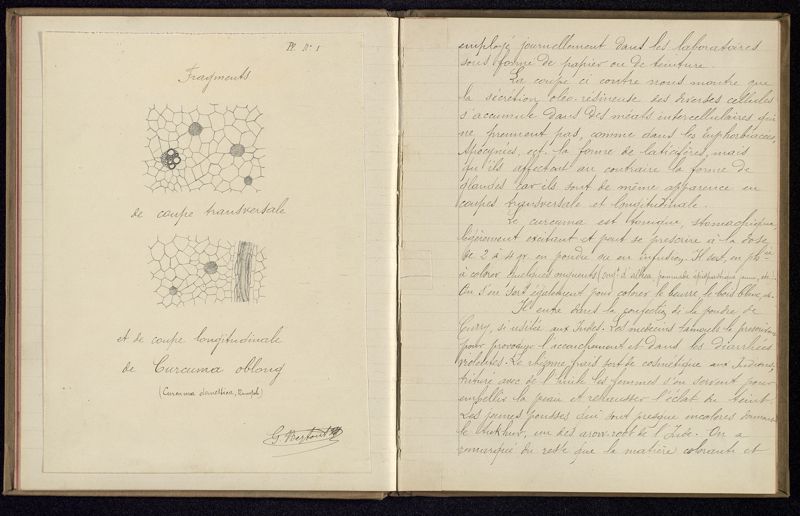 Pl. N° 1
Fragments
de coupe transversale
et de coupe longitudinale
de Curcuma oblong
(Curcuma domestica, Rumph)
G Bertout
employé journellement dans les laboratoires
sous forme de papier ou de teinture.
La coupe ci contre nous montre que
la sécrétion oléo-résineuse des diverses cellules
s'accumule dans des méats intercellulaires qui
ne prennent pas, comme dans les Euphorbiacées,
Apocynées, ect. la forme de laticifères, mais
qu'ils affectent au contraire la forme de
glandes car ils sont de même apparence en
coupes transversale et longitudinale.
Le curcuma est tonique, stomachique,
légèrement excitant et peut se prescrire à la dose
de 2 à 4 gr. en poudre ou en infusion. Il sert, en ph^ie
à colorer quelques onguents (ong^t d'althea, pommade épispastique jaune, etc)
On s'en sert également pour colorer le beurre, le bois blanc, etc.
Il entre dans la confection de la poudre de
Curry, si usitée aux Indes. Les médecins Tamouls le prescrivent
pour provoquer l'accouchement et dans les diarrhées
violentes. Le rhizome frais sert de cosmétique aux Indiens,
trituré avec de l'huile les femmes s'en servent pour
embellir la peau et rehausser l'éclat du teint.
Les jeunes pousses qui sont presque incolores donnent
le un des arow-root de l'Inde. On a
remarqué du reste que la matière colorante et